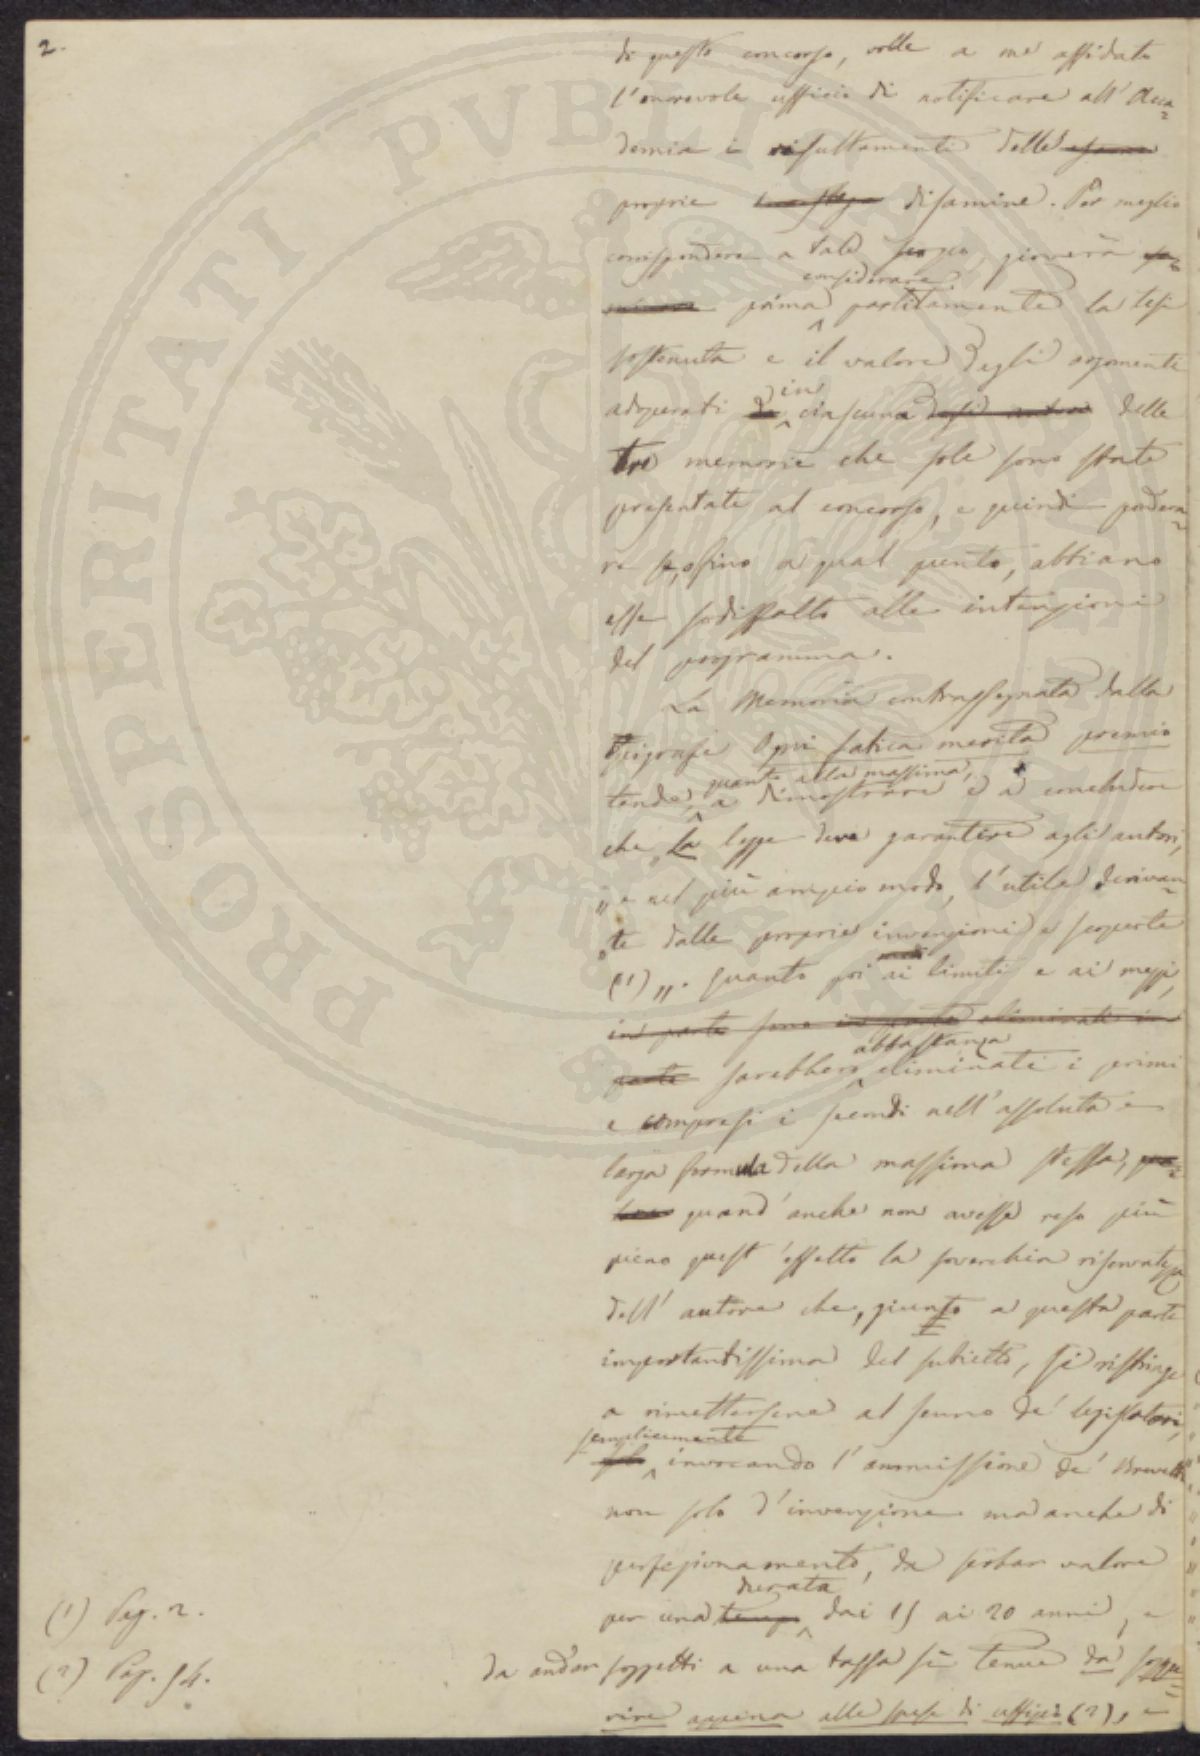 2.
di questo concorso, volle a me affidato
l'onorevole ufficio di notificare all'Acca=
demia i risultamenti delle esame
proprie disamine. Per meglio
corrispondere a tale scopo, gioverà
considerare
prima partitamente la tesi
sostenuta e il valore degli argomenti
in
adoperati da ciascuna delle
tre memorie che sole sono state
presentate al concorso, e quindi pondera=
re se, o fino a qual punto, abbiano
esse sodisfatto alle intenzioni
del programma.
La Memoria contrassegnata dalla
Epigrafe Ogni fatica merita premio
quanto alla massima,
tende, a dimostrare e a concludere
che "la legge deve garantire agli autori,
" e nel più ampio modo, l'utile derivan=
" te dalle proprie invenzioni e scoperte
(1) ". Quanto poi ai limiti e ai mezzi,
in parte sono in parte eliminati in
abbastanza
parte sarebbero eliminati i primi
e compresi i secondi nell'assoluta e
larga formula della massima stessa,
quand'anche non avesse reso più
pieno quest'effetto la soverchia riservatezza
dell'autore che, giunto a questa parte
importantissima del subietto, si ristringe
a rimettersene al senno de' legislatori,
semplicemente
solo invocando l'ammissione de' Brevetti
non solo d'invenzione ma anche di
perfezionamento, da serbar valore
durata
per una tempo dai 15 ai 20 anni, e
da andar soggetti a una tassa sì tenue da soppe=
rire appena alle spese di uffizio (2), e
(1) Pag. 2.
(2) Pag. 54.
PROSPERITATI PUBLICAE